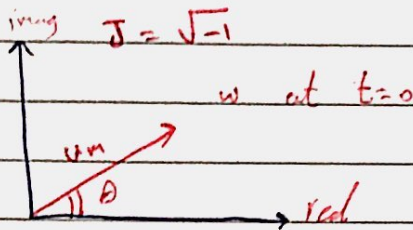 imag J = √-1
w at t=0
vm
θ
real